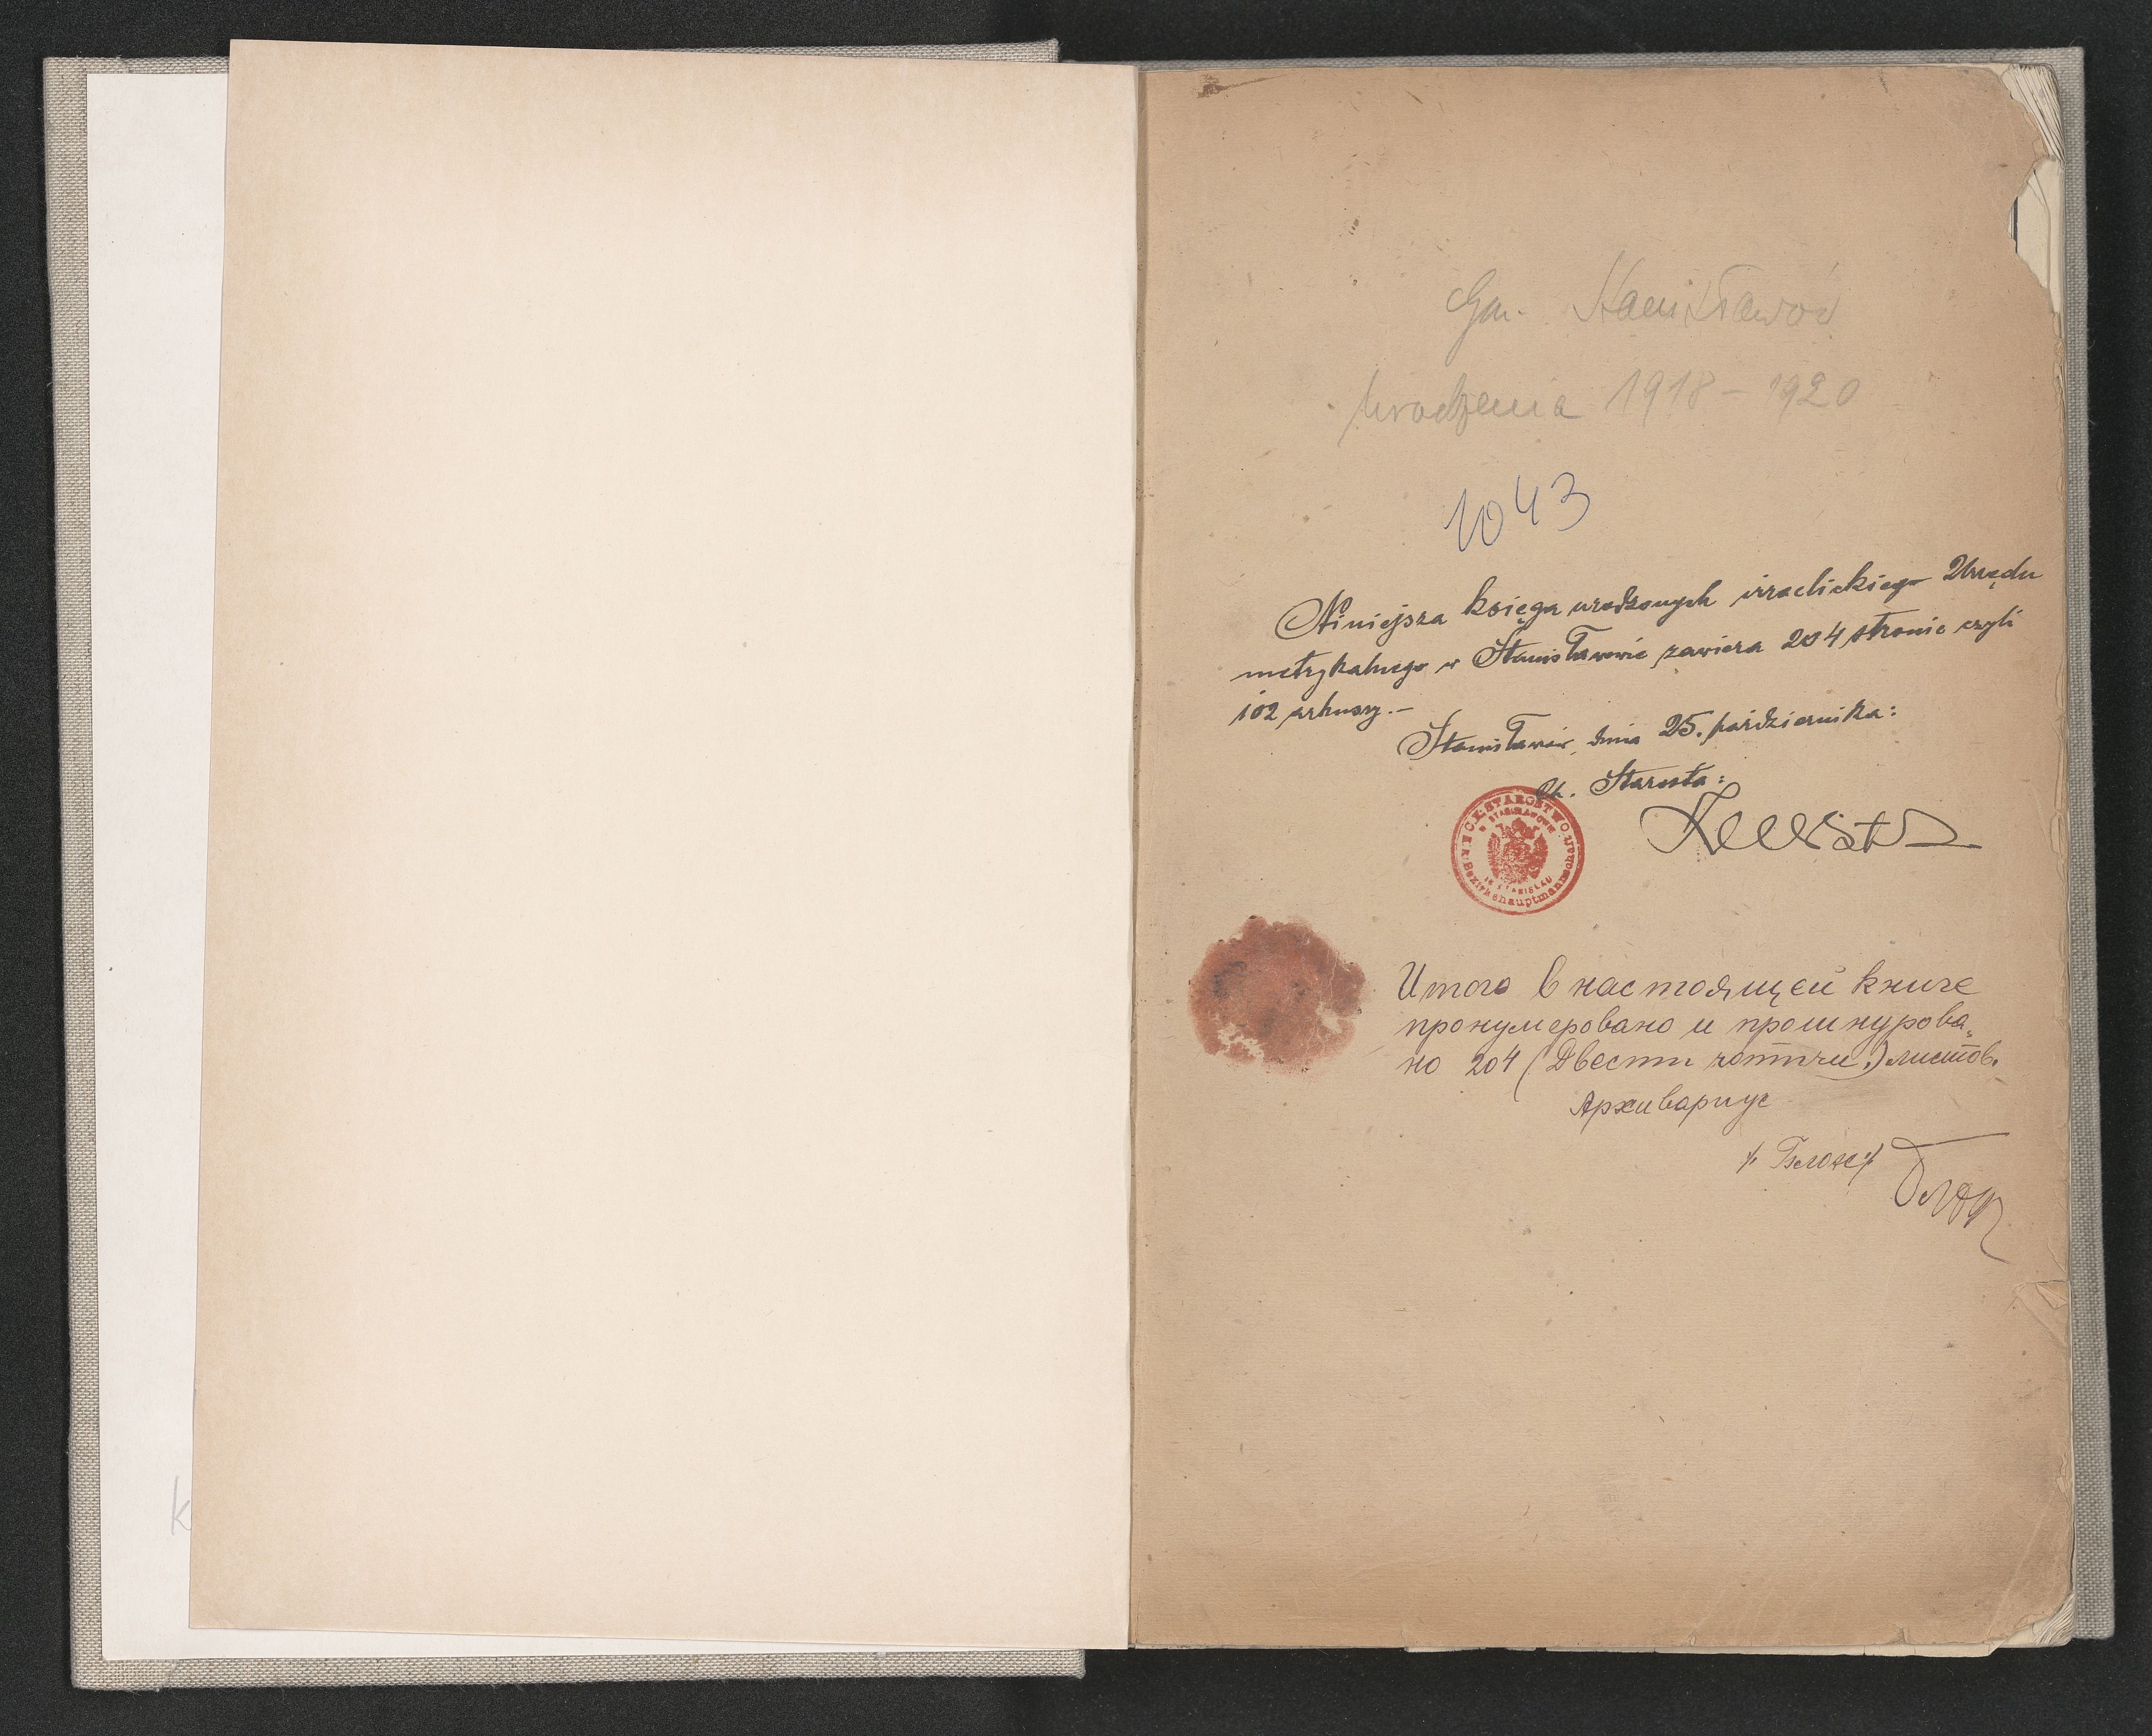 Gm. Stanisławów
Urodzenia 1918-1920
1043
Niniejsza księga urodzonych izraelickiego Urzędu
metrykalnego w Stanisławowie zawiera 204 stronic czyli
102 arkuszy.-
Stanisławów, dnia 25. października:
Starosta:
C.K. STAROSTWO
W STANISŁAWOWIE
K.K. Bezirkshauptmannschaft
IN STANISLAU
Итого в настоящей книге
пронумеровано и прошнурова-
но 204 (Двести четыри) листов.
Архивариус
k